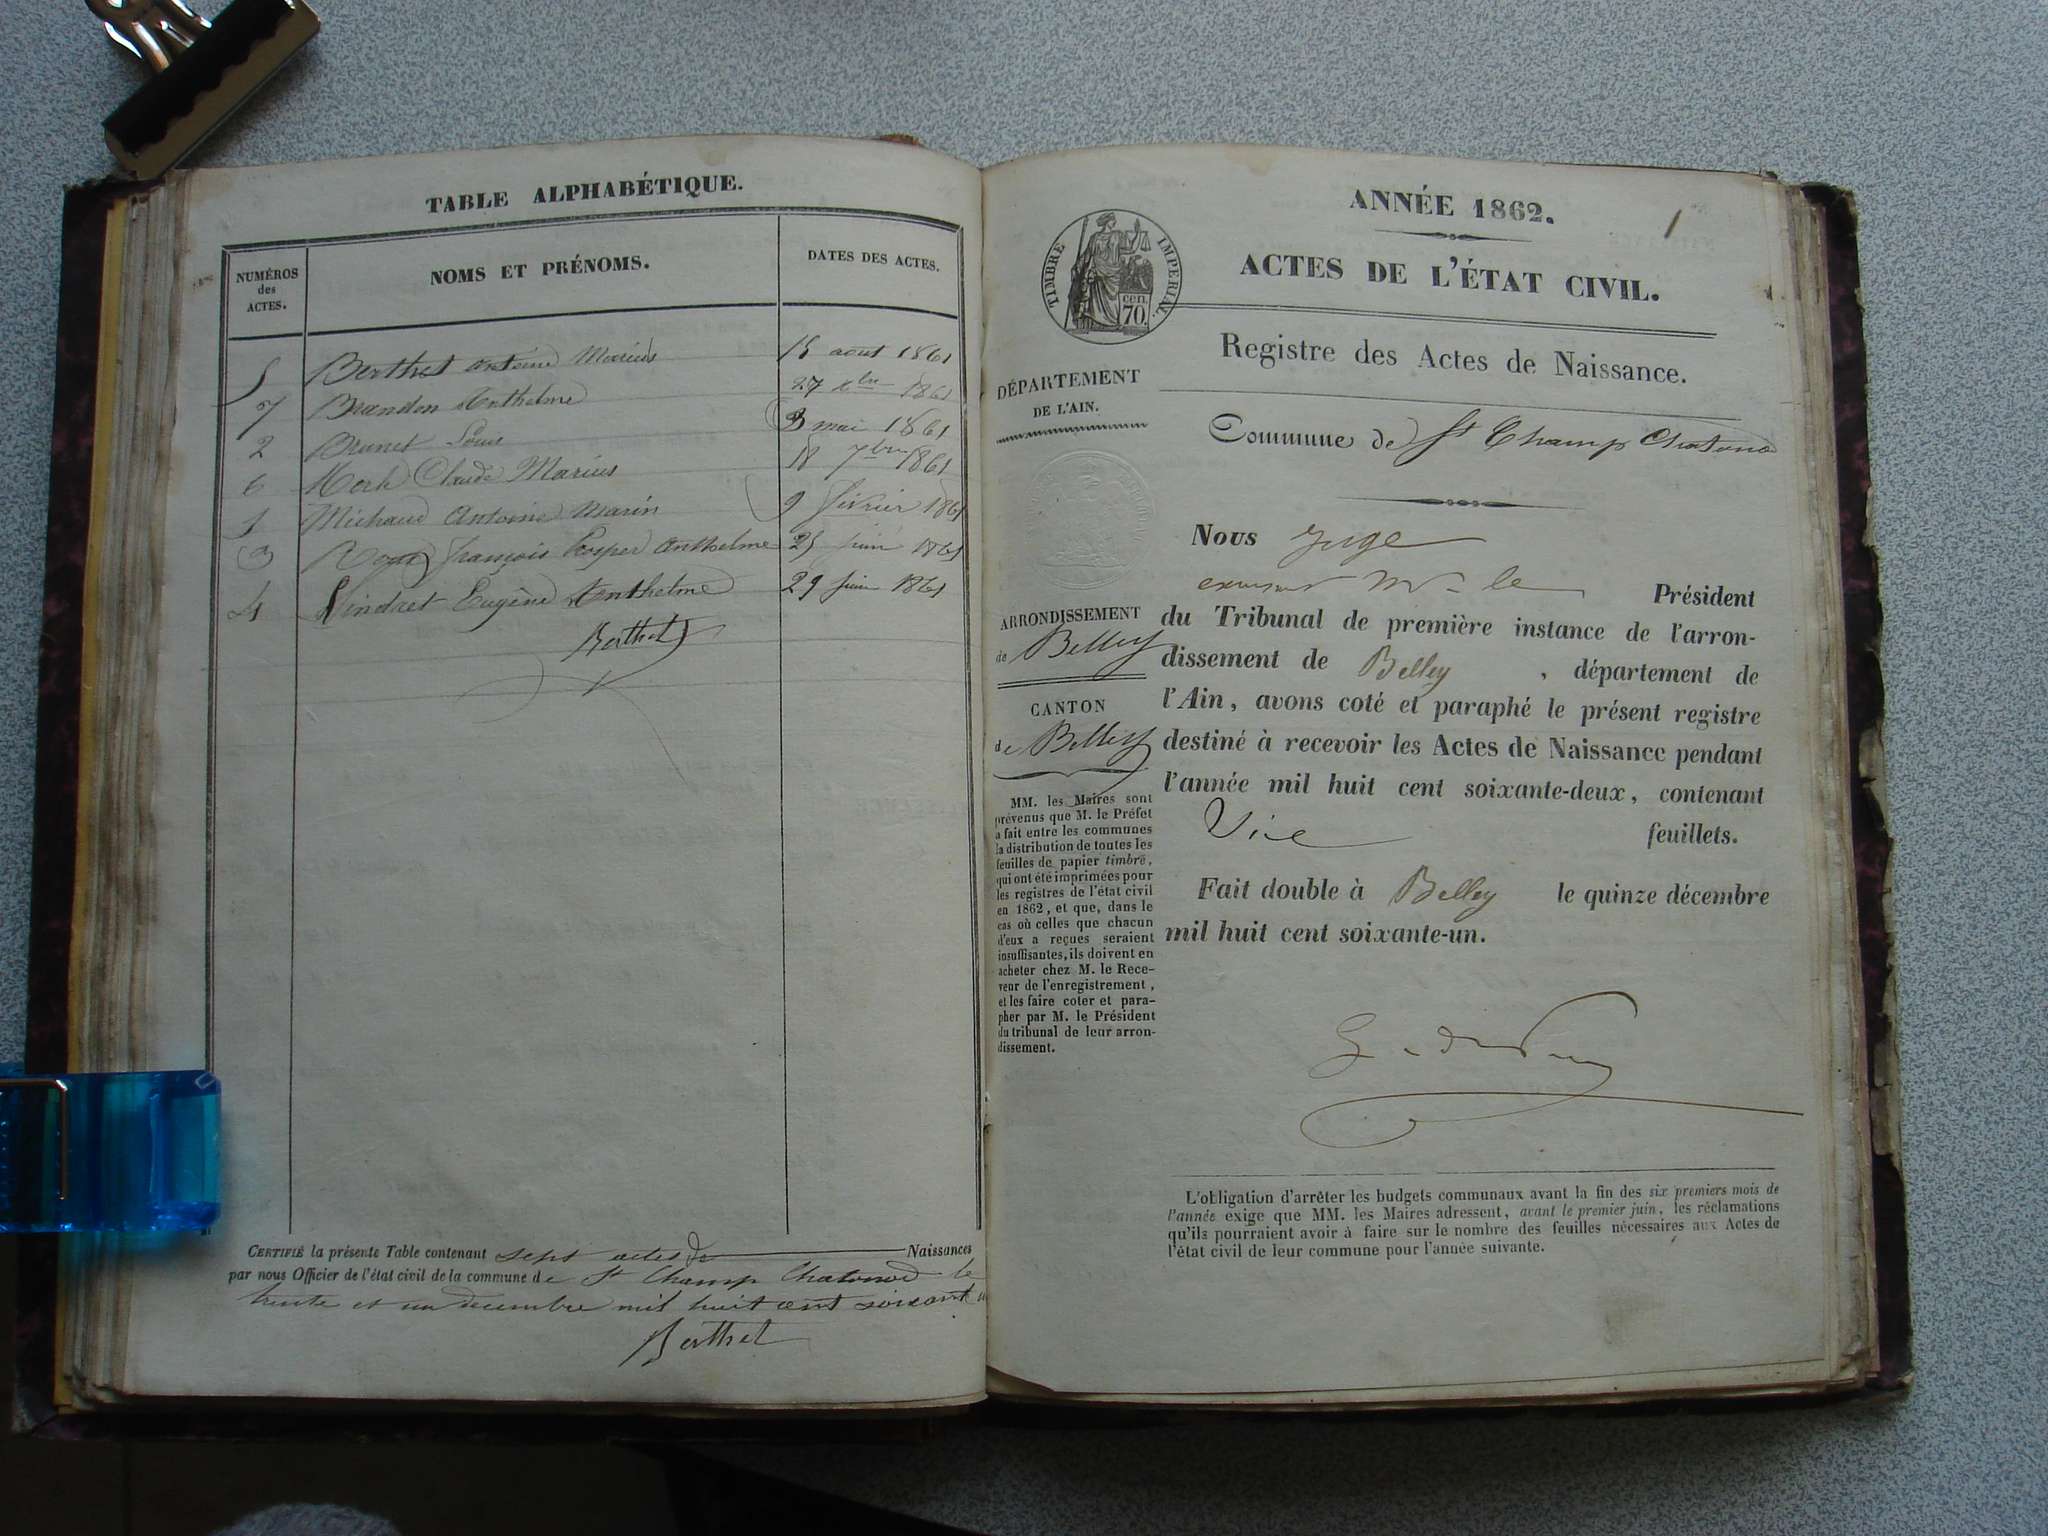 TABLE ALPHABÉTIQUE.
NUMÉROS des ACTES. NOMS ET PRÉNOMS. DATES DES ACTES.
5 Berthet Antoine Marius 15 aout 1861
7 Brandon Anthelme 27 xbre 1861
2 Brunet Louis 3 mai 1861
6 Claude Marius 18 7bre 1861
1 Michaud Antoine Marin 9 février 1861
3 françois Prosper Anthelme 25 juin 1861
4 Vindret Eugène Anthelme 29 juin 1861
Berthet
CERTIFIÉ la présente Table contenant sept actes de Naissances
par nous Officier de l'état civil de la commune de St Champ Chatonod le
trente et un decembre mil huit cent soixante u
Berthet
ANNÉE 1862.
1
ACTES DE L'ÉTAT CIVIL.
TIMBRE IMPERIAL.
cen. 70.
Registre des Actes de Naissance.
DÉPARTEMENT
DE L'AIN.
Commune de St Champ Chatonod
ARRONDISSEMENT
de Belley
CANTON
de Belley
MM. les Maires sont
prévenus que M. le Préfet
a fait entre les communes
la distribution de toutes les
feuilles de papier timbré,
qui ont été imprimées pour
les registres de l'état civil
en 1862, et que, dans le
cas où celles que chacun
d'eux a reçues seraient
insuffisantes, ils doivent en
acheter chez M. le Rece-
veur de l'enregistrement,
et les faire coter et para-
pher par M. le Président
du tribunal de leur arron-
dissement.
Nous Juge
Mr le Président
du Tribunal de première instance de l'arron-
dissement de Belley, département de
l'Ain, avons coté et paraphé le présent registre
destiné à recevoir les Actes de Naissance pendant
l'année mil huit cent soixante-deux, contenant
feuillets.
Fait double à Belley le quinze décembre
mil huit cent soixante-un.
L'obligation d'arrêter les budgets communaux avant la fin des six premiers mois de
l'année exige que MM. les Maires adressent, avant le premier juin, les réclamations
qu'ils pourraient avoir à faire sur le nombre des feuilles nécessaires aux Actes de
l'état civil de leur commune pour l'année suivante.